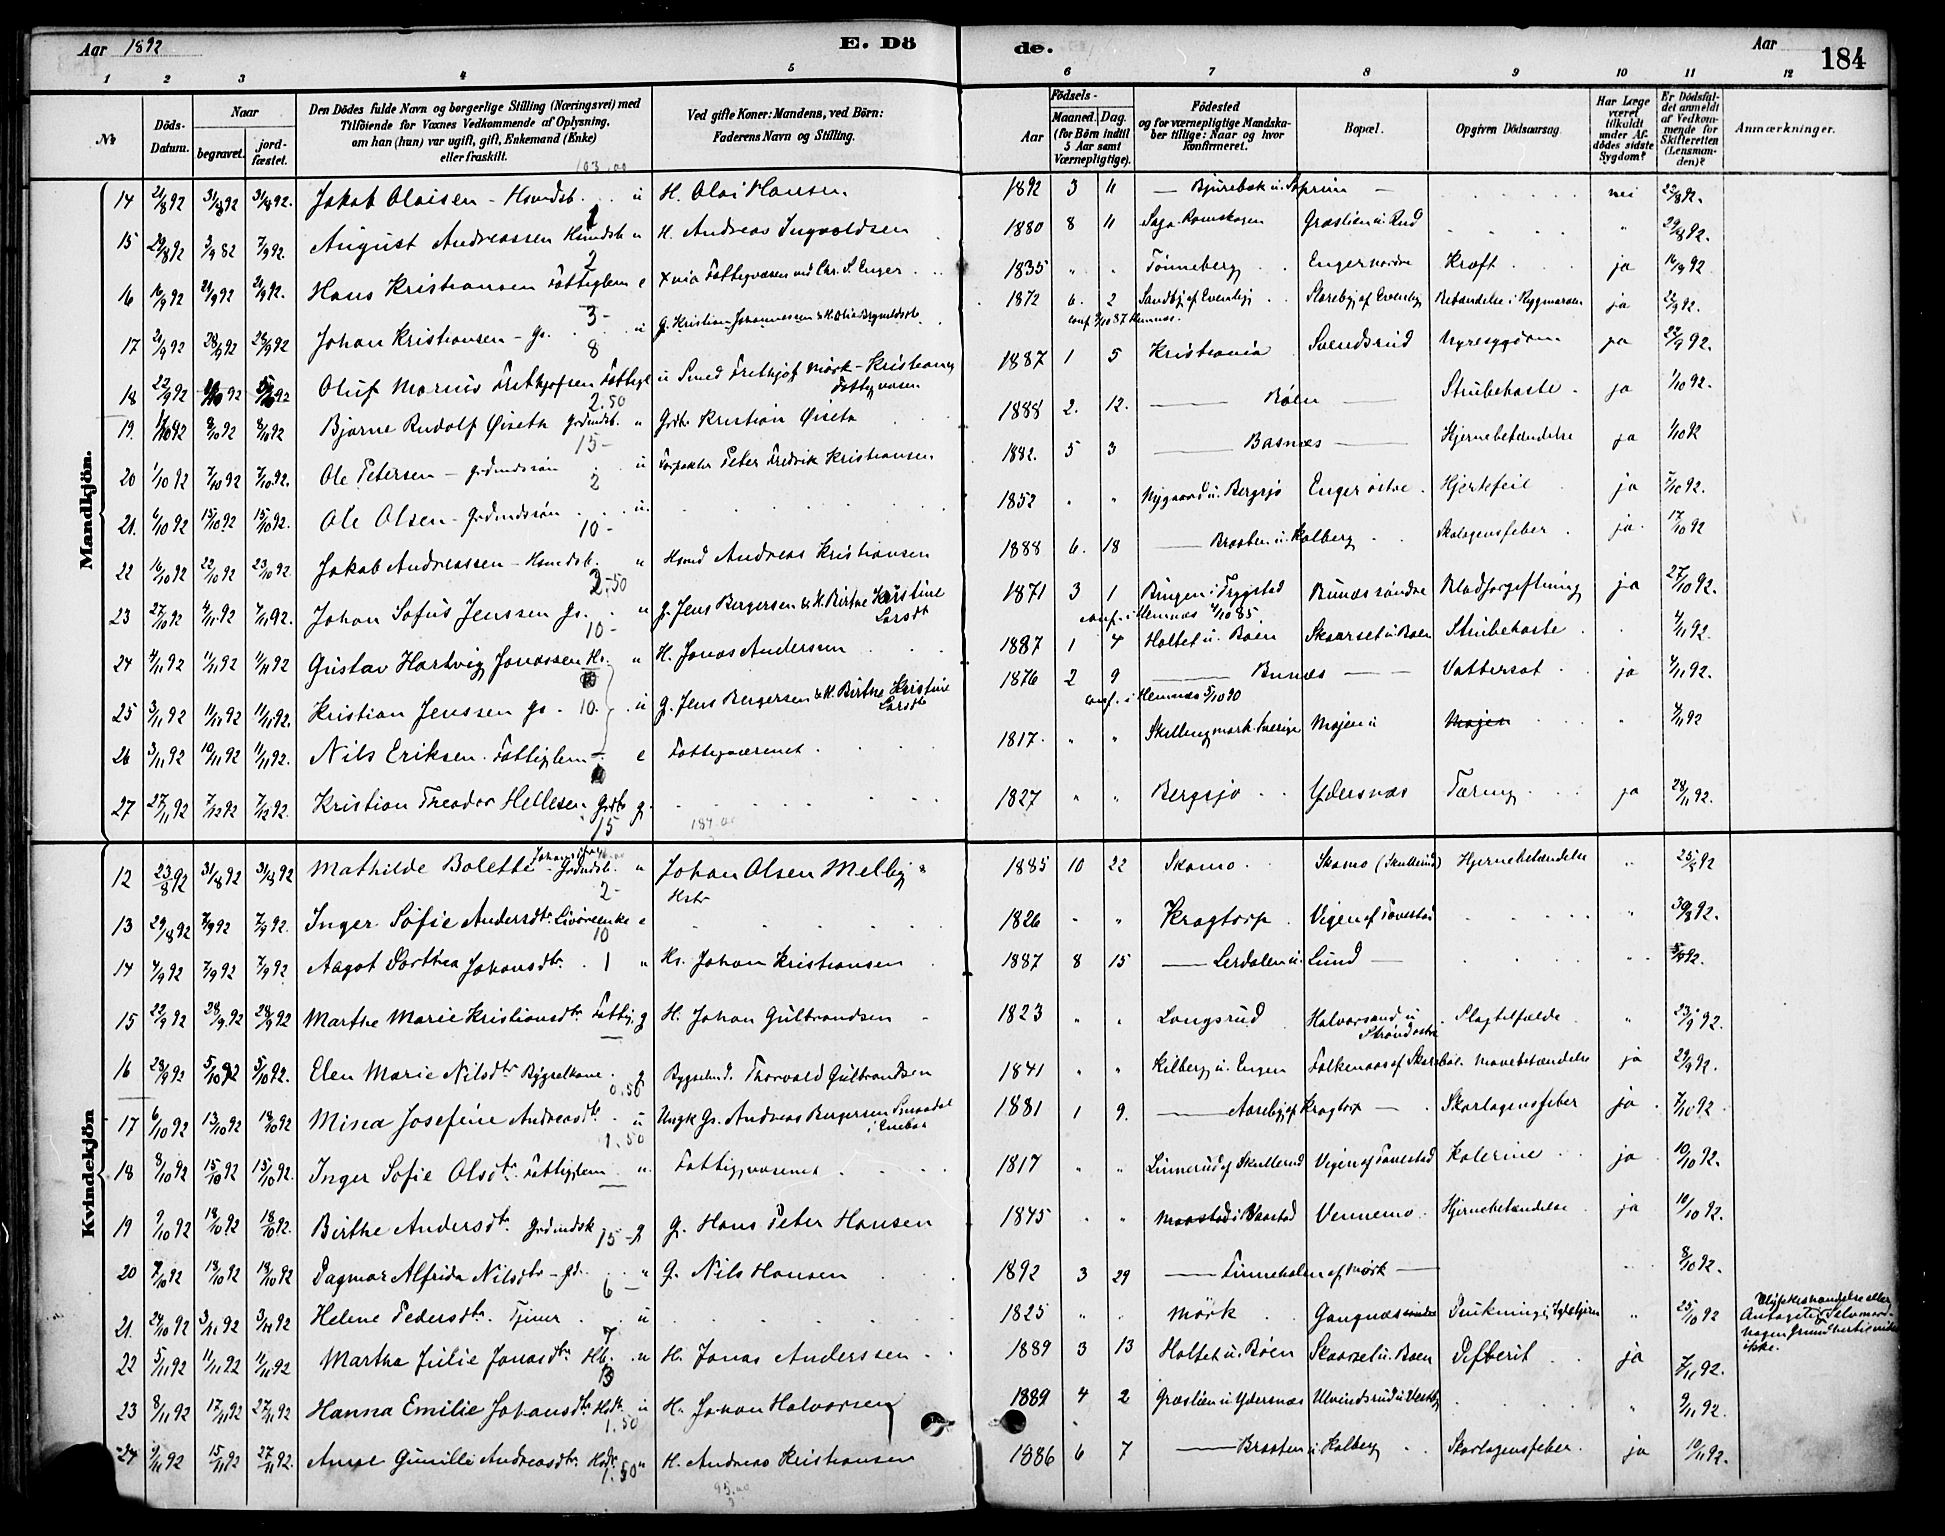 Aar 1892
E. Dö
de.
Aar
184
1 2 3 4 5 6 7 8 9 10 11 12
№
Döds-Datum.
Naar
begravet.
jordfæstet.
Den Dödes fulde Navn og borgerlige Stilling (Næringsvei) med
Tilföiende for Voxnes Vedkommende af Oplysning,
om han (hun) var ugift, gift, Enkemand (Enke)
eller fraskilt.
Ved gifte Koner: Mandens, ved Börn:
Faderens Navn og Stilling.
Födsels-
Aar
Maaned. Dag.
(for Börn indtil
5 Aar samt
Værnepligtige).
Födested
og for værnepligtige Mandska-
ber tillige: Naar og hvor
konfirmeret.
Bopæl.
Opgiven Dödsaarsag.
Har Læge
været
tilkaldt
under Af-
dödes sidste
Sygdom?
Er Dödsfal-
det anmeldt
af Vedkom-
mende for
Skifteretten
(Lensman-
den)?
Anmærkninger.
103.00
Mandkjön.
14 21/8 92 31/8 92 31/8 92. Jakob Olaisen - Hsmdsb. u H. Olai Hansen. 1892 3 11 — Bjurebæk u. — nei 22/8 92.
15 29/8 92 3/9 82 7/9 92. August Andreassen Hsmdsb u H. Andreas Ingvoldsen 1880 8 11 Saga Romskogen Græslien u. Rud " 29/8 92.
16 16/9 92 21/9 92 21/9 92. Hans Kristiansen Fattiglem e Fattigvæsen ved Chr. S. Enger 1835 " " Tönneberg Enger nordre Kræft ja 16/9 92
17 21/9 92 28/9 92 28/9 92 Johan Kristiansen - Gs. u G. Kristian Johannessen 1872 6. 2 Sandbÿ af Evenbÿ Skarebÿ af Evenbÿ Betændelse i Rygmarven ja 22/9 92.
conf. 2/10 87 Hemnæs.
18 22/9 92 Oluf Marius Frithjofsen Fattigl u Smed Frithjof Mörk - Kristiania Fattigvæsen 1887 1 5 Kristiania Svendsrud Nyresygdom ja 22/9 92.
19. 1/10 92 8/10 92 8/10 92 Bjarne Rudolf Öiseth Grdmdsb. " Grdbr Kristian Öiseth 1888 2. 12. — Böen — Strubehoste ja 1/10 92.
20 1/10 92 7/10 92 7/10 92. Ole Petersen - Grdmdssön u Forpakter Peter Fredrik Kristiansen 1882. 5 3 — Basnæs — Hjernebetændelse ja 1/10 92
21. 6/10 92 15/10 92 15/10 92. Ole Olsen - Grdmdssön u. 1852 " " Nygaard u. Bergsjö Enger östre Hjertefeil ja 7/10 92.
22 16/10 92 22/10 92 23/10 92. Jakob Andreassen - Hsmdsb. " Hsmd Andreas Kristiansen 1888 6. 18 — Braaten u. Kolberg Skarlagensfeber ja. 17/10 92
23 27/10 92 4/11 92 7/11 92. Johan Sofus Jenssen Gs. " G. Jens Bergersen & H. Birthe Kristine Larsdt 1871 3 1 Bingen i Trygstad Bunæs söndre Blodforgiftning ja 27/10 92.
conf. i Hemnæs 4/10 85.
24 4/11 92 11/11 92 11/11 92 Gustav Hartvig Jonassen Hs. " H. Jonas Andersen 1887 1 4 Holtet u. Boen Skaarset u. Boen Strubehoste 4/11 92.
25 3/11 92 11/11 92 11/11 92. Kristian Jenssen Gs u G. Jens Bergersen & H. Birthe Kristine Larsdt 1876 2 9 — Bunæs — Vattersot ja 4/11 92.
conf. i Hemnæs 5/10 90
26 3/11 92 10/11 92 11/11 92. Nils Eriksen. Fattiglem e Fattigvæsenet 1817. " " Skillingmark Sverige Mosen u Mosen " 4/11 92
27 27/11 92 7/12 92 7/12 92. Kristian Theodor Hellesen Grdbr g. 1827 " " Bergsjö Ydersnæs Tæring ja 28/11 92.
Kvindekjön
12 23/8 92 31/8 92 31/8 92 Mathilde Bolette Grdmdsb. " Johan Olsen Melby Hstr 1885 10 22 Skamo Skamo (Skullerud) Hjernebetændelse " 25/8 92
13 29/8 92 7/9 92 7/9 92. Inger Sofie Andersdtr. Livöreenke e 1826 " " Kragtorp Vigen af Tovestad " 30/8 92.
14 4/9 92 7/9 92 7/9 92 Aagot Dorthea Johansdtr. " Hs. Johan Kristiansen 1887 8 15 — Lerdalen u. Lund — 5/9 92.
15 22/9 92 28/9 92 28/9 92 Marthe Marie Kristiansdtr. Fattig g H. Johan Gulbrandsen 1823 " " Langsrud Halvorsund u Strönd östre Slagtilfælde " 23/9 92.
16 28/9 92 5/10 92 5/10 92. Elen Marie Nilsdtr Bygselkone g Bygselmd. Thorvald Gulbrandsen 1841 " " Kilberg u. Engen Falkenaas af Skarebøl Mavebetændelse ja 29/9 92.
17 6/10 92 13/10 92 18/10 92 Mina Josefine Andreasdtr u Ungk Gs. Andreas Bergersen Smaadal i Enebak 1881 1 9. — Aarebÿ af Kragtorp — Skarlagensfeber ja 7/10 92
18 8/10 92 15/10 92 15/10 92. Inger Sofie Olsdtr Fattiglem u. Fattigvæsenet 1817 " " Linnerud af Skullerud Vigen af Tovestad Kolerine ja 10/10 92.
19 9/10 92 18/10 92 18/10 92. Birthe Andersdtr. Grdmdsk 15 g G. Hans Peter Hansen 1845 " " Vennemo Hjernebetændelse ja 10/10 92.
20 7/10 92 18/10 92 18/10 92 Dagmar Alfrida Nilsdtr - Gd. 6 " G. Nils Hansen 1892 3 29 — Finneholen af Mörk — 8/10 92.
21. 24/10 92 3/11 92 3/11 92 Helene Pedersdtr. Tjener u 1825 " " Mörk Gangnæs Drukning i " 25/10 92
Ulykkeshændelse eller
Selvmord
22 5/11 92 11/11 92 11/11 92 Martha Julie Jonasdtr Hb. u H. Jonas Anderssen 1889 3 13 Holtet u. Böen Skaarset u. Boen Difterit ja 7/11 92.
23 8/11 92 17/11 92 27/11 92 Hanna Emilie Johansdtr u H. Johan Halvorsen 1889 4 2 Græslien u Ydersnæs Ulvindsrud u. Vestby " 9/11 92.
1.50
24 9/11 92 15/11 92 27/11 92. Anne Gunille Andreasdtr. " H. Andreas Kristiansen 1886 6 7 — Braaten u Kolberg Skarlagensfeber ja 10/11 92.
1.50
95.00